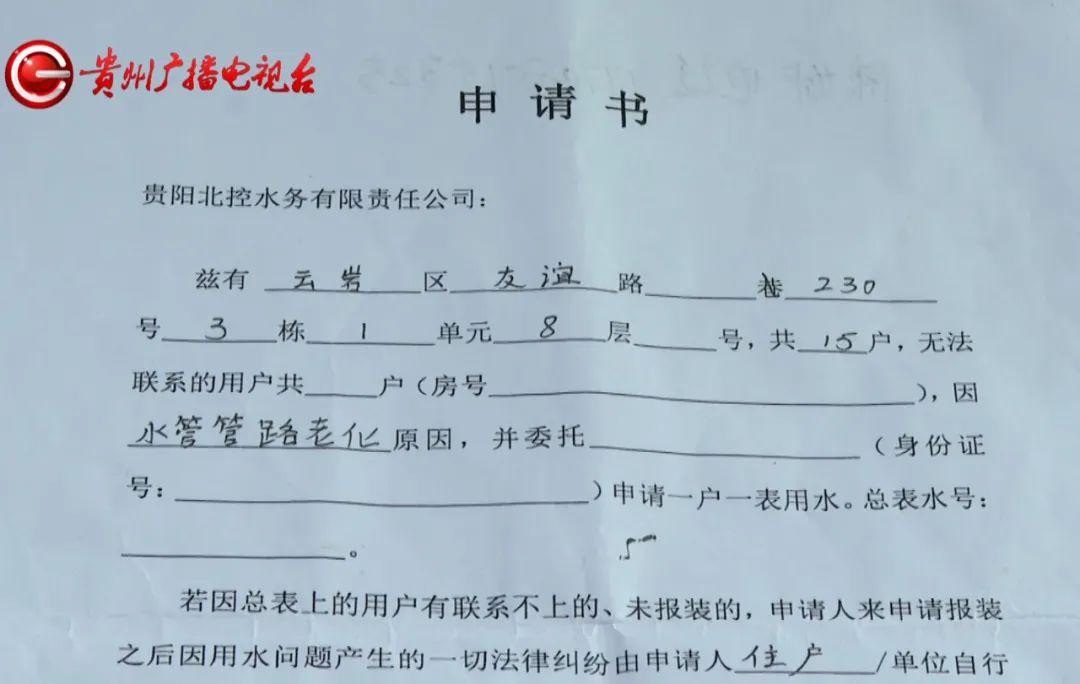 贵州广播电视台
申请书
贵阳北控水务有限责任公司:
兹有 云岩 区 友谊 路______巷 230
号 3 栋 1 单元 8 层______号,共 15 户,无法
联系的用户共_____户(房号______________________),因
水管管路老化原因,并委托________________(身份证
号:________________________)申请一户一表用水。总表水号:
________________。
若因总表上的用户有联系不上的、未报装的,申请人来申请报装
之后因用水问题产生的一切法律纠纷由申请人 住户 /单位自行